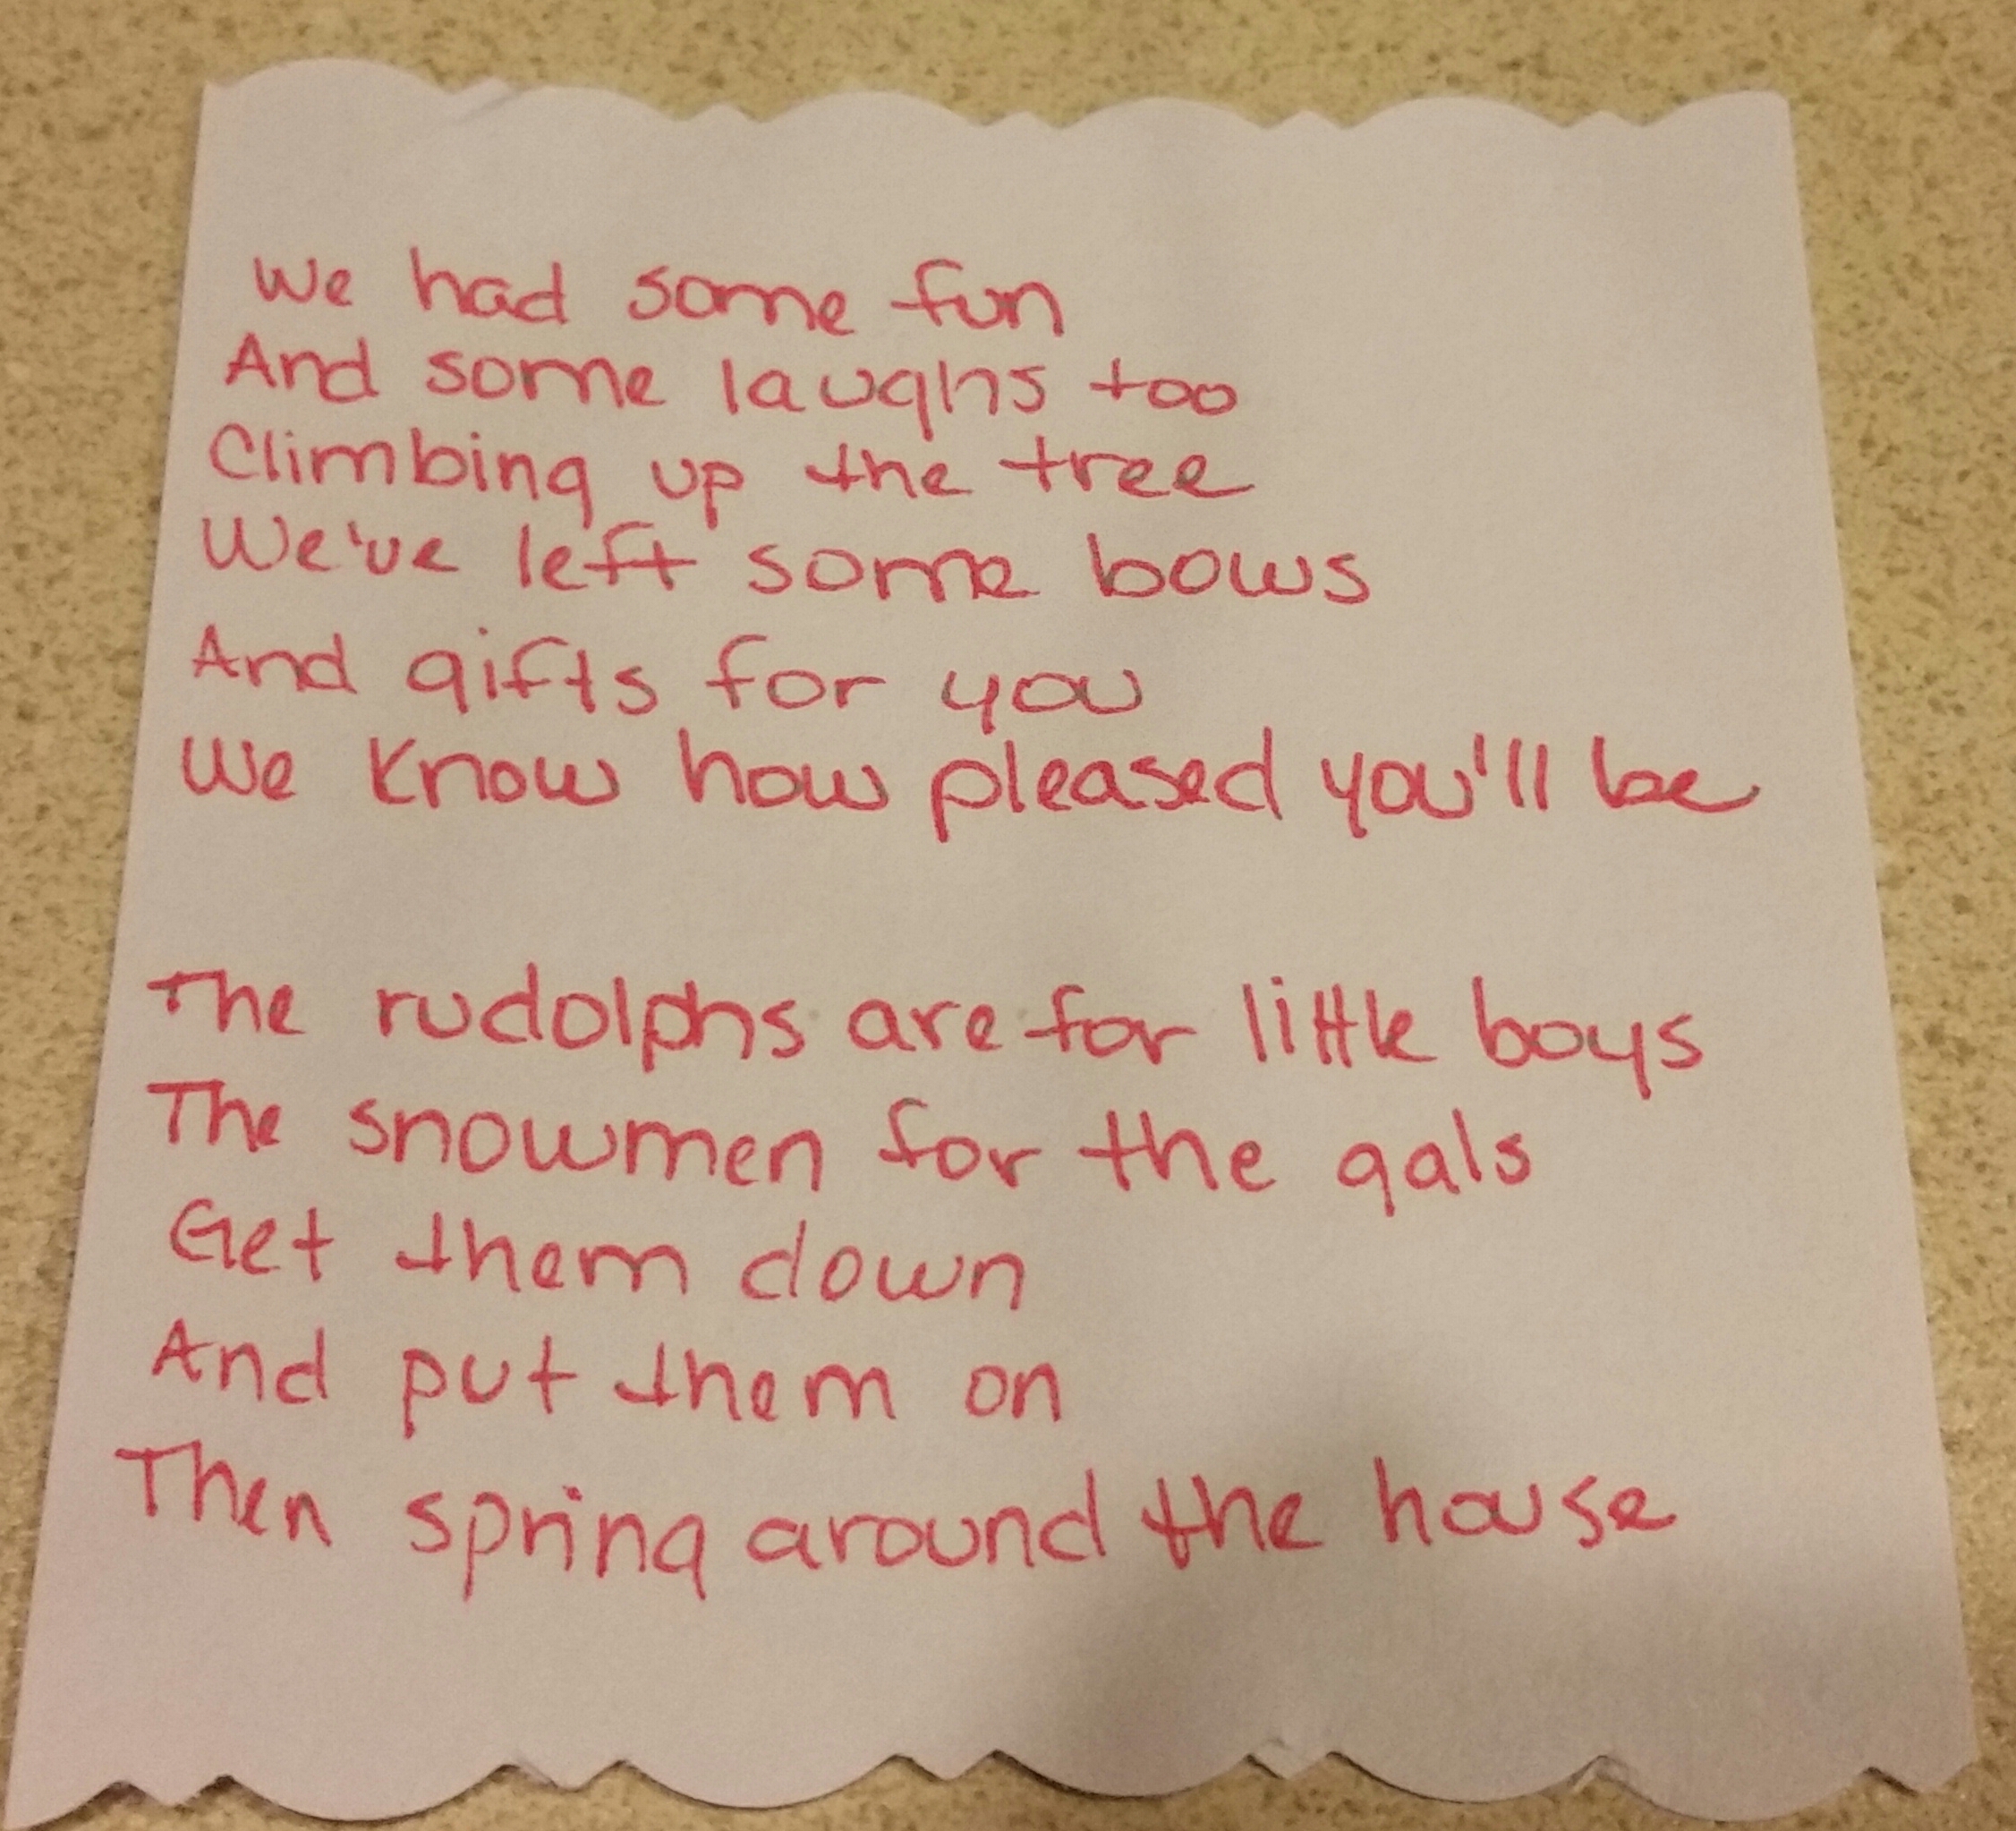 We had some fun
And some laughs too
Climbing up the tree
We've left some bows
And gifts for you
We know how pleased you'll be
The rudolphs are for little boys
The snowmen for the gals
Get them down
And put them on
Then spring around the house